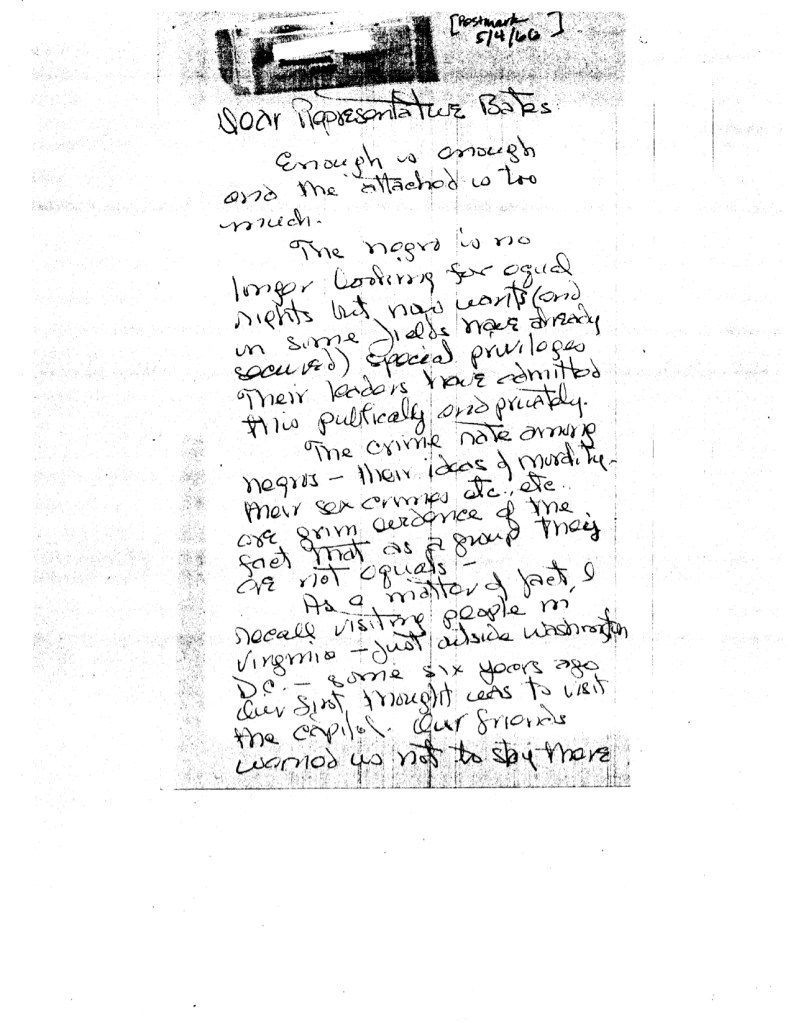 [Postmark
5/4/66]
Dear Representative Bates
Enough is enough
and the attached is too
much.
The negro is no
longer looking for equal
rights but now wants (and
in some fields have already
secured) special privileges
Their leaders have admitted
this publically and privately.
The crime rate among
negros – their ideas of morality –
their sex crimes etc., etc.
are grim evidence of the
fact that as a group they
are not equals –
As a matter of fact, I
recall visiting people in
Virginia – just outside Washington
D.C. – some six years ago
Our first thought was to visit
the capitol. Our friends
warned us not to stay there